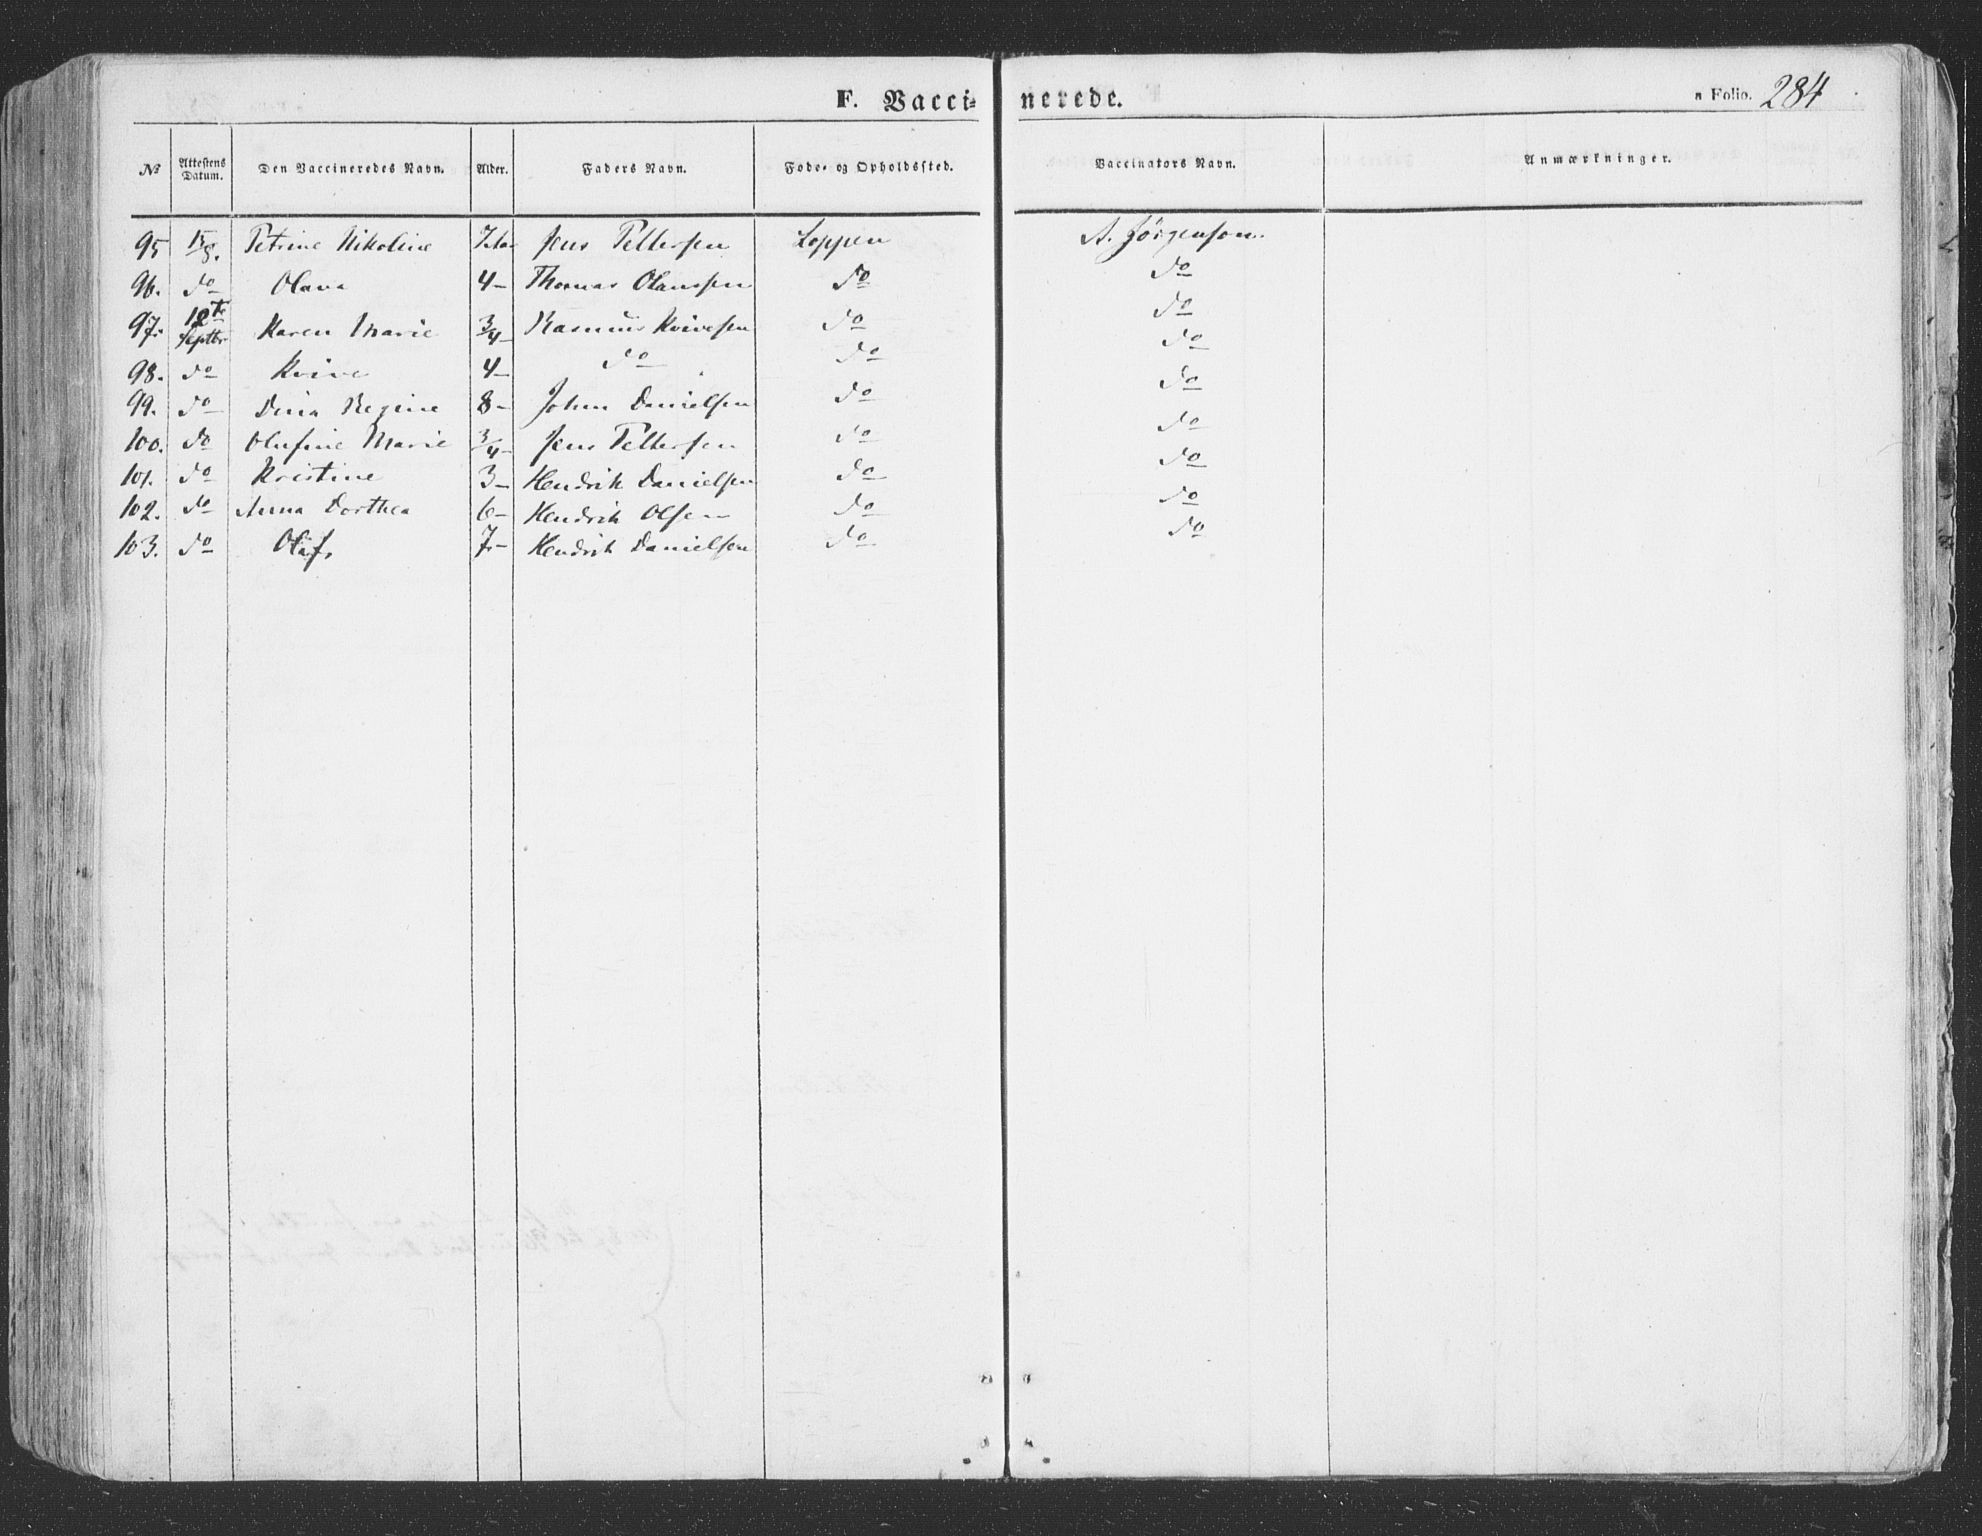 F. Vaccinerede. Folio. 284
No Attestens Datum. Den Vaccineredes Navn. Alder. Faders Navn. Føde- og Opholdssted. Vaccinators Navn. Anmærkninger.
95 15/8. Petrine Nikoline 7 Jens Pettersen Loppen A. Jörgenson.
96. do Olava 4 – Thomas Olaussen do do
97. 18te Septbr Karen Marie 3/4 – Rasmus Kvivesen do do
98. do Kvive 4 – do do do
99. do Dina Regine 8 – Johan Danielsen do do
100. do Olufine Marie 3/4 – Jens Pettersen do do
101. do Kristine 3 – Hendrik Danielsen do do
102. do Anna Dorthea 6 – Hendrik Olsen do do
103. do Olaf, 7 – Hendrik Danielsen do do